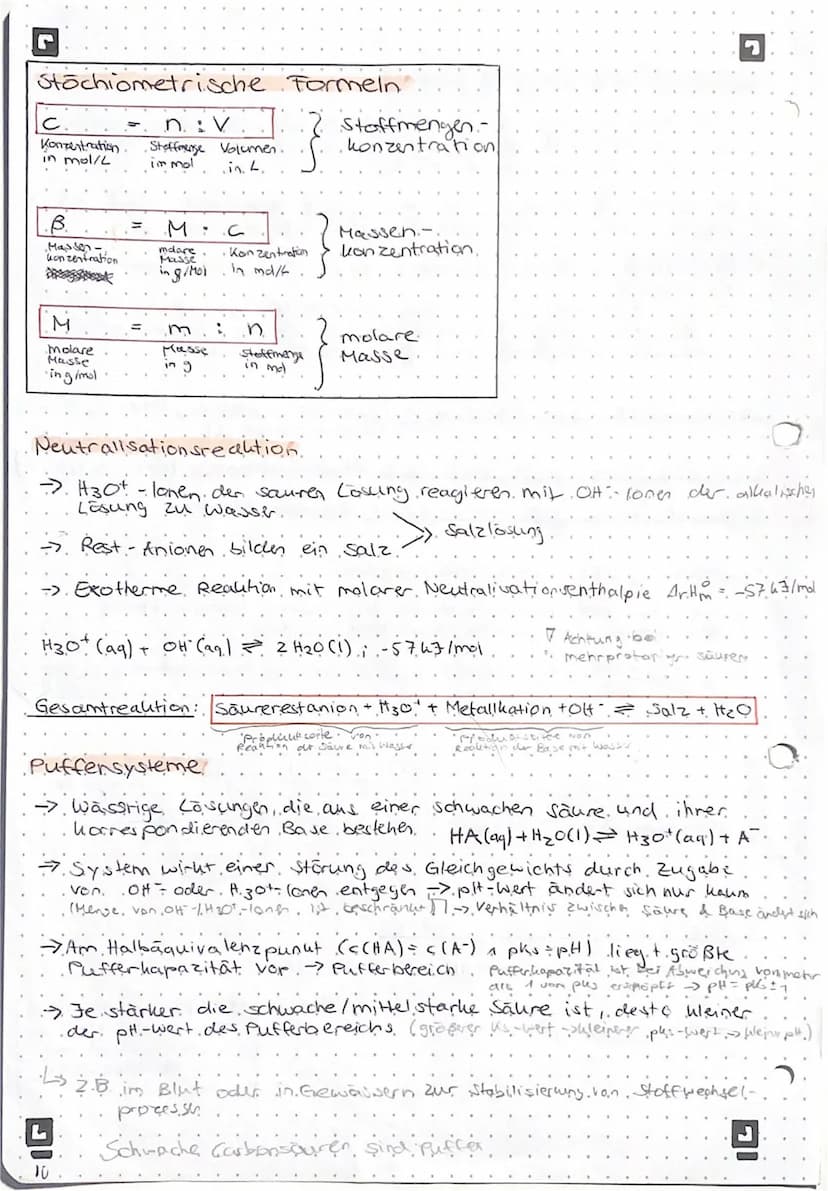 Stöchiometrische Formeln
C = n : V
Konzentration in mol/L
Stoffmenge in mol
Volumen in L
Stoffmengen-
konzentration
β = M · C
Massen-
konzentration
molare Masse in g/mol
Konzentration in mol/L
Massen-
konzentration
M = m : n
molare Masse in g/mol
Masse in g
Stoffmenge in mol
molare
Masse
Neutralisationsreaktion
→ H3O+ -Ionen der sauren Lösung reagieren mit OH- -Ionen der alkalischen
Lösung zu Wasser
→ Rest-Anionen bilden ein Salz
>> Salzlösung
→ Exotherme Reaktion mit molarer Neutralisationsenthalpie ΔrH°m = -57kJ/mol
H3O+ (aq) + OH- (aq) ⇌ 2 H2O (l) ; -57kJ/mol
Achtung bei
mehrprotonigen Säuren
Gesamtreaktion: Säurerestanion + H3O+ + Metallkation + OH- ⇌ Salz + H2O
Produktseite von
Reaktion der Säure mit Wasser
Produktseite von
Reaktion der Base mit Wasser
Puffersysteme
→ Wässrige Lösungen, die aus einer schwachen Säure und ihrer
korrespondierenden Base bestehen HA(aq) + H2O(l) ⇌ H3O+(aq) + A-
→ System wirkt einer Störung des Gleichgewichts durch Zugabe
von OH- oder H3O+-Ionen entgegen → pH-Wert ändert sich nur kaum
(Menge von OH-/H3O+-Ionen ist beschränkt → Verhältnis zwischen Säure & Base ändert sich
→ Am Halbäquivalenzpunkt (c(HA) = c(A-) ∧ pks = pH) liegt größte
Pufferkapazität vor → Pufferbereich
Pufferkapazität ist bei Abweichung von mehr
als 1 von pks erschöpft → pH = pks ± 1
→ Je stärker die schwache/mittelstarke Säure ist, desto kleiner
der pH-Wert des Pufferbereichs (größerer Ks-Wert → kleinerer pks-Wert → kleiner pH)
↳ z.B im Blut oder in Gewässern zur Stabilisierung von Stoffwechsel-
prozessen
Schwache Carbonsäuren sind Puffer
10